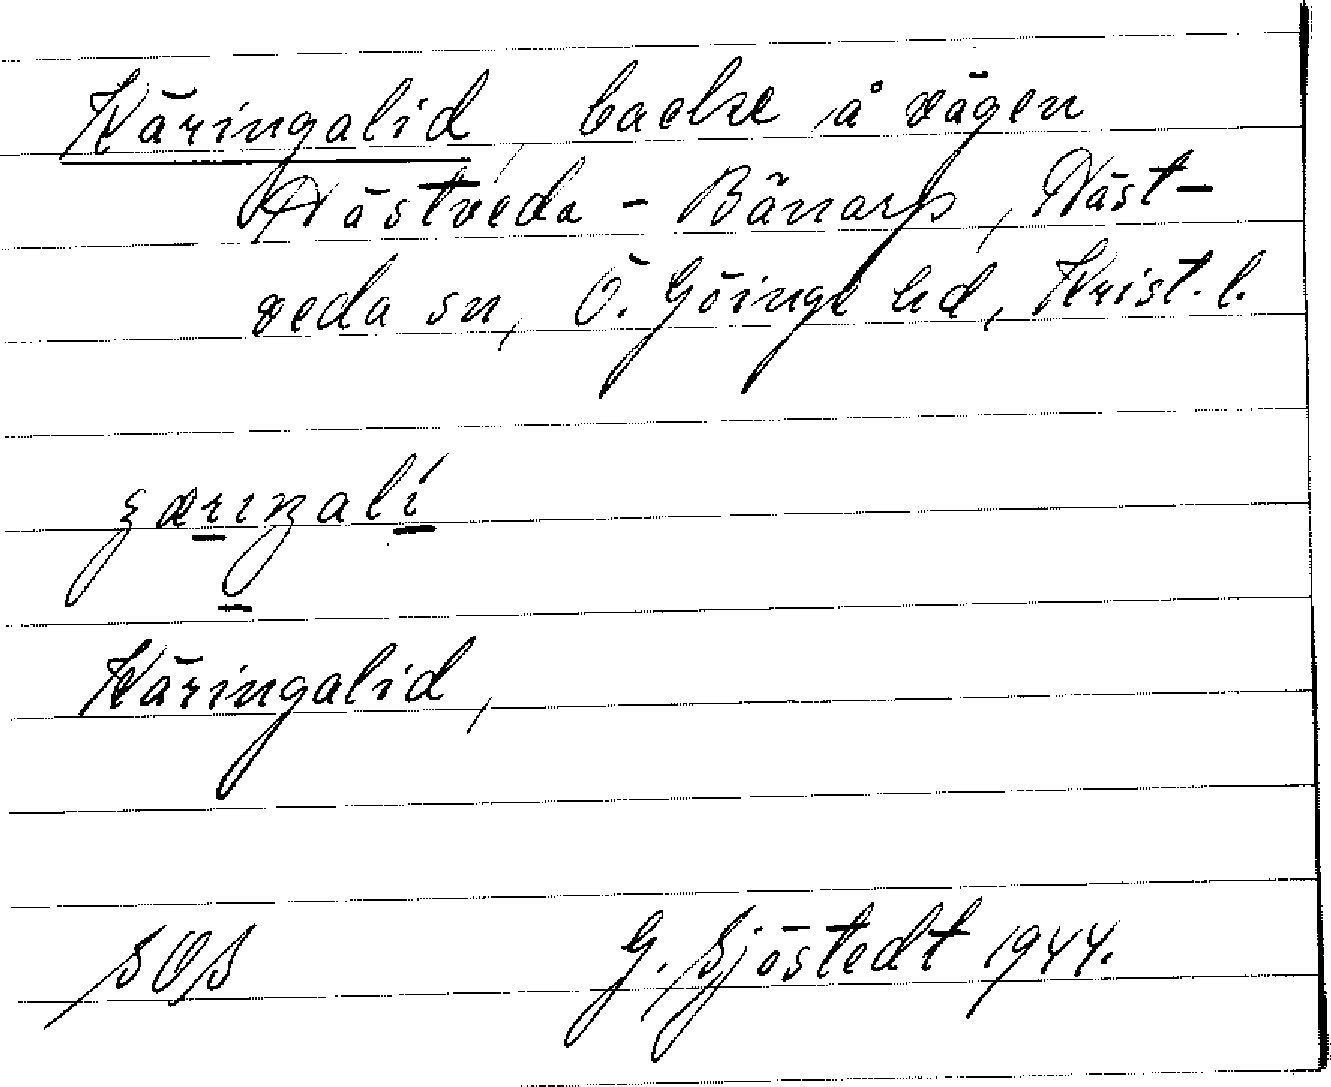 Käringalid, backe å vägen
Nästveda - Bönarp, Näst-
veda sn, Ö. Göinge hd, Krist. l.
Käringalid,
SOS G. Sjöstedt 1944.